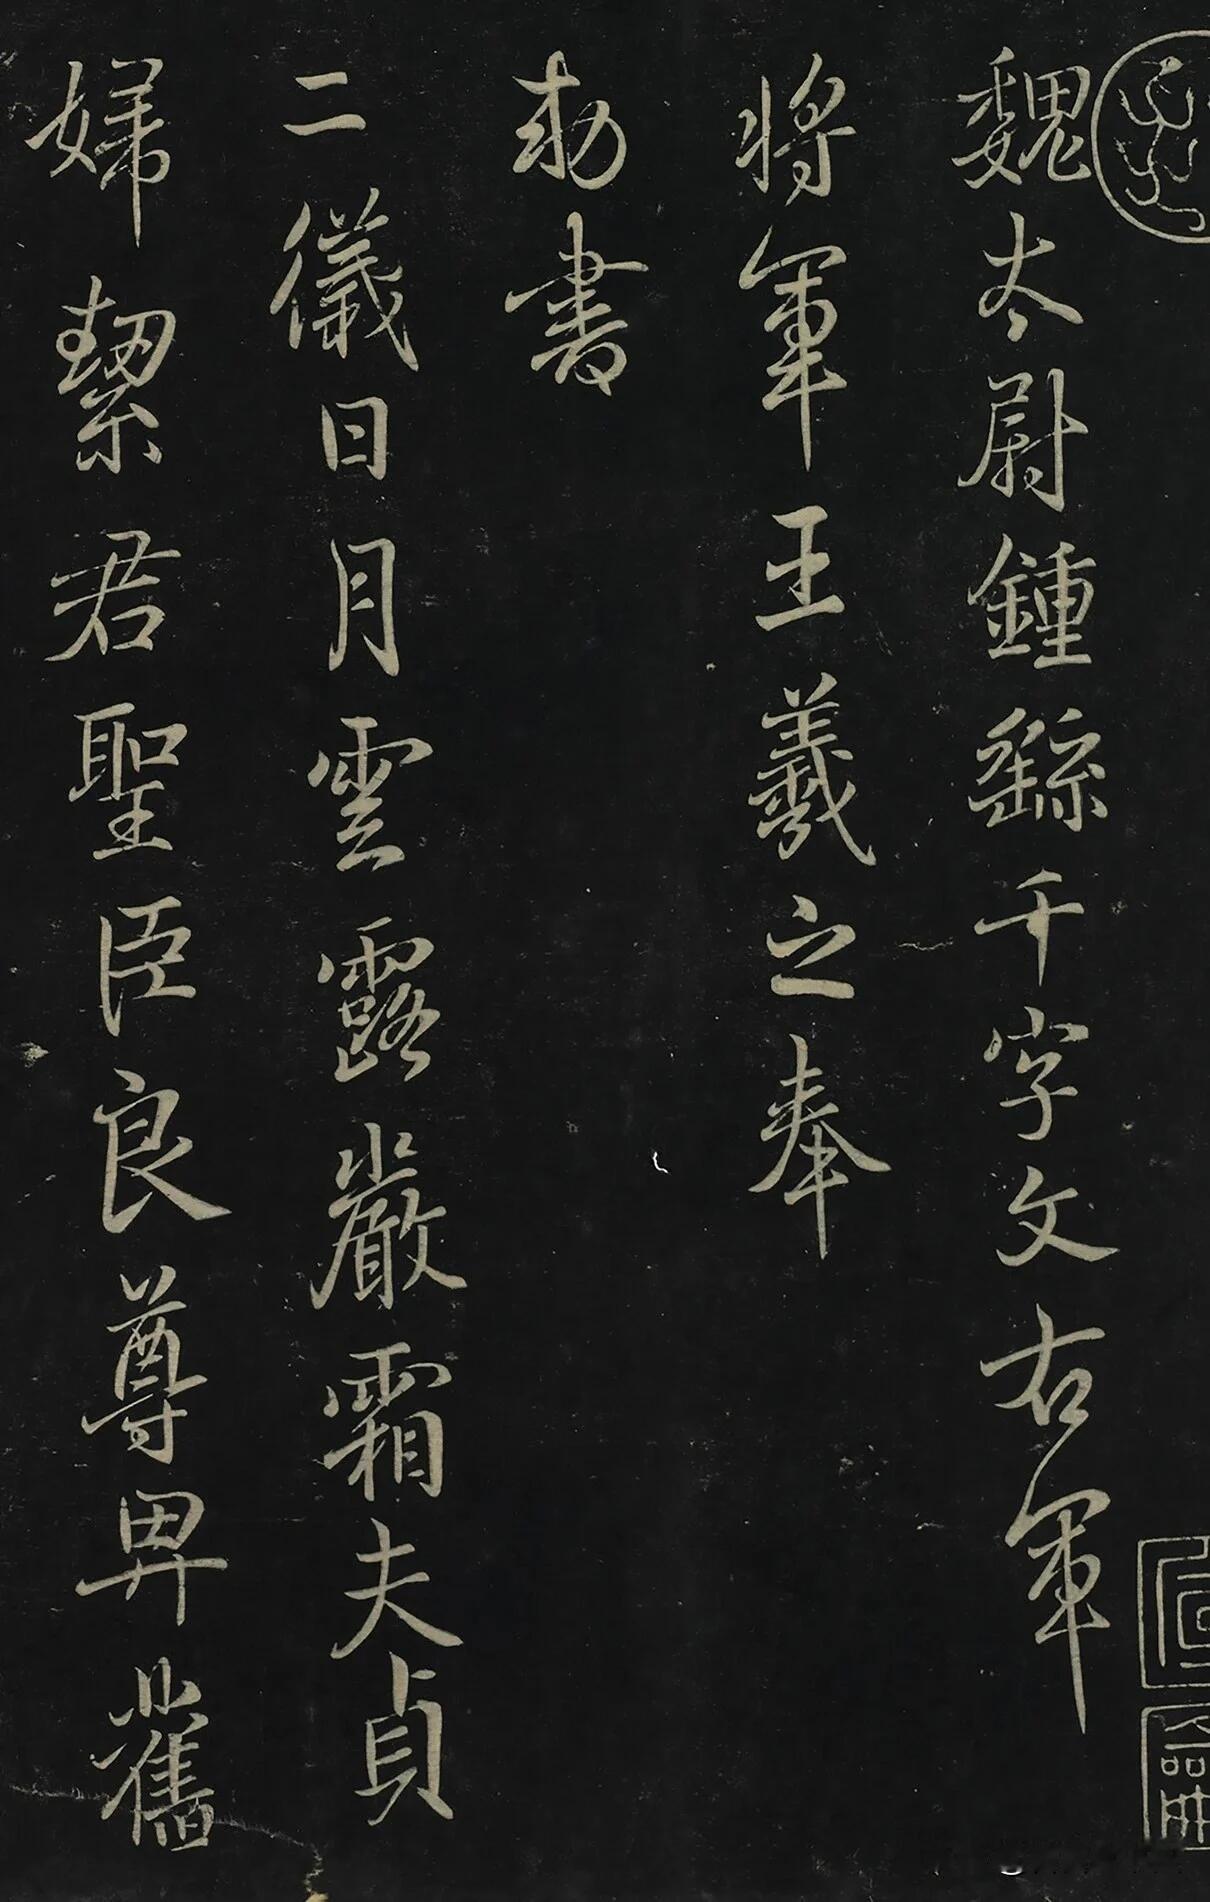 魏太尉鍾繇千字文右軍
將軍王羲之奉
勑書
二儀日月雲露嚴霜夫貞
婦絜君聖臣良尊卑舊